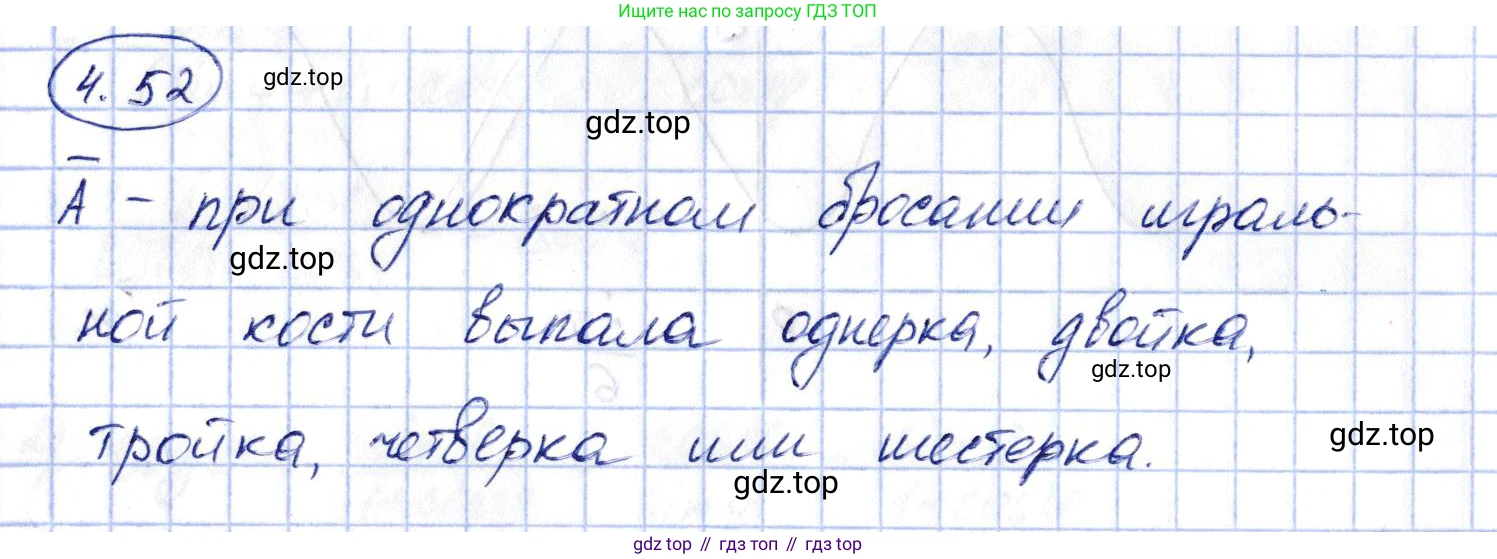 Ищите нас по запросу ГДЗ ТОП
4.52 gdz.top
gdz.top
A̅ - при однократном бросании играль-
gdz.top
ной кости выпала однерка, двойка,
gdz.top
тройка, четверка или шестерка.
gdz.top
gdz.top
gdz top // гдз топ // гдз top